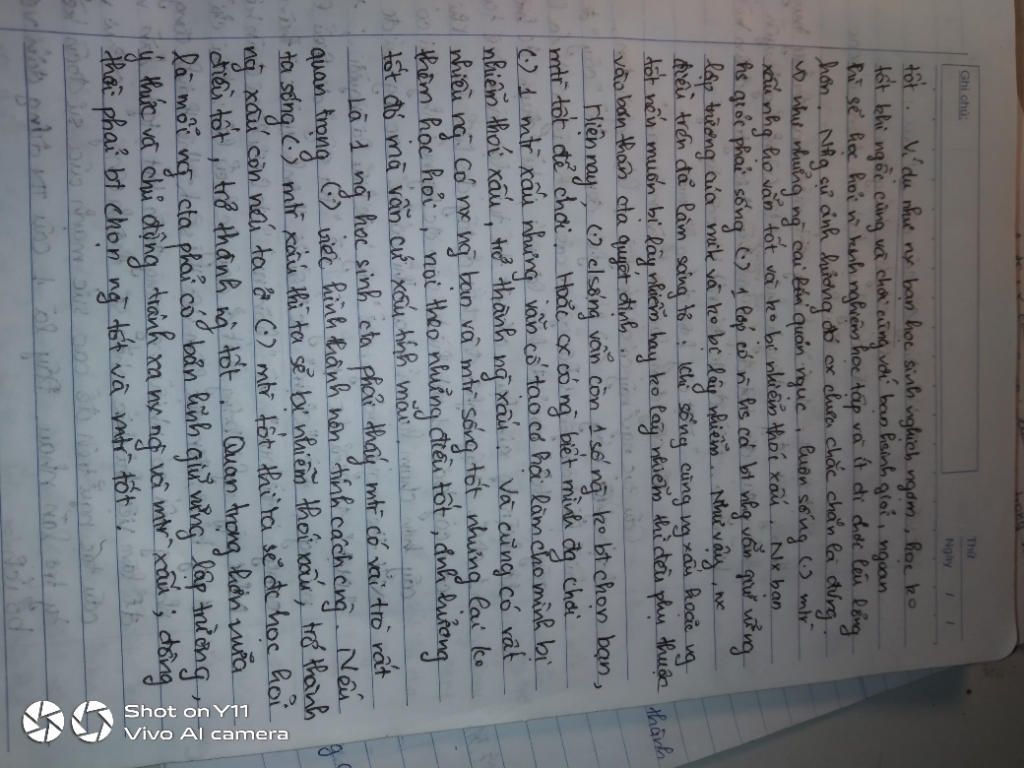 Ghi chú:
Thứ
Ngày / /
tốt. Ví dụ như nx bạn học sinh nghịch ngợm, học ko
tốt khi ngồi cùng và chơi cùng với bạo hành giỏi, ngoan
thì sẽ học hỏi n kinh nghiệm học tập và ít đi dc lối sống
hơn. Nhg sự ảnh hưởng đó cx chưa chắc chắn là đúng.
VD như những ng cai tản quản ngục, luôn sống (.) mtr
xấu nhg họ vẫn tốt và ko bị nhiễm thói xấu. Nx bạn
hs giỏi phải sống (.) 1 lớp có n hs cá bt nhg vẫn giữ vững
lập trường của mình và ko bị lây nhiễm. Như vậy, nx
điều trên đã làm sáng tỏ: khi sống cùng ng xấu hoặc ng
tốt nếu muốn bị lây nhiễm hay ko lây nhiễm thì đều phụ thuộc
vào bản thân cta quyết định.
Hiện nay, (.) c/sống vẫn còn 1 số ng ko bt chọn bạn,
mtr tốt để chơi. Hoặc cx có ng biết mình đg chơi
(.) 1 mtr xấu nhưng vẫn cố tạo cơ hội làm cho mình bị
nhiễm thói xấu, trở thành ng xấu. Và cũng có rất
nhiều ng có nx ng bạn và mtr sống tốt nhưng lại ko
thèm học hỏi, noi theo những điều tốt, ảnh hưởng
tốt đó mà vẫn cứ xấu tính mãi.
Là 1 ng học sinh cta phải thấy mtr có vai trò rất
quan trọng (.) việc hình thành nên tính cách cng. Nếu
ta sống (.) mtr xấu thì ta sẽ bị nhiễm thói xấu, trở thành
ng xấu còn nếu ta ở (.) mtr tốt thì ta sẽ đc học hỏi
điều tốt, trở thành ng tốt. Quan trọng hơn nữa
là mỗi ng cta phải có bản lĩnh giữ vững lập trường,
ý thức và chủ động tránh xa nx ng và mtr xấu; đồng
thời phải bt chọn ng tốt và mtr tốt;
Shot on Y11
Vivo AI camera